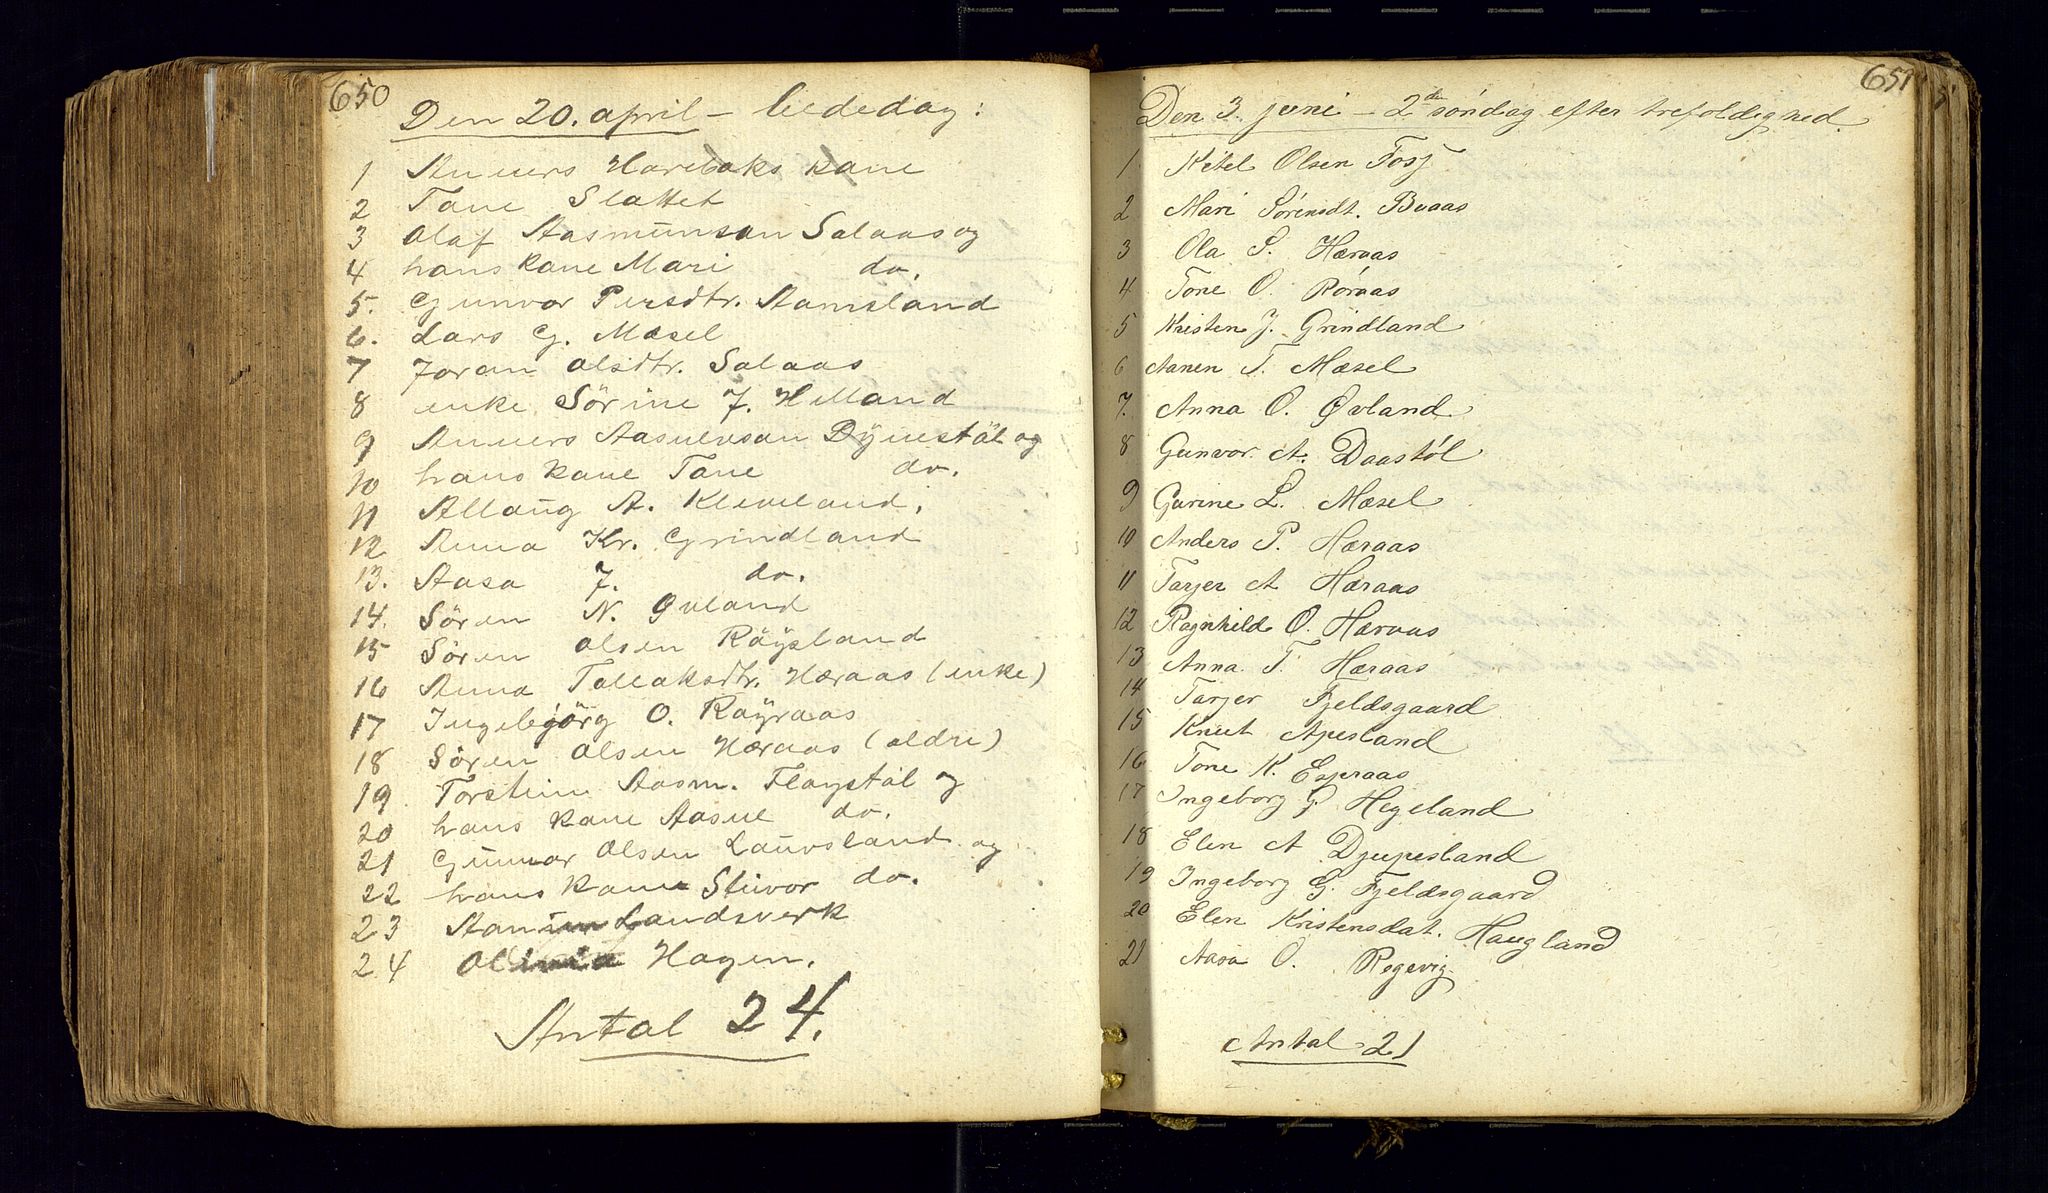 650
Den 20. april - bededag:
1 Anners Harebaks kane
2 Tane Slattet
3 Olaf Aasmunsan Salaas og
4 hans kane Mari do.
5. Gunvor Persdtr. Aamsland
6. Lars G. Mæsel
7 Joran Olsdtr. Salaas
8 enke Sörine J. Helland
9 Anners Aasuldsan Dynestöl og
10 hans kane Tane do.
11 Allaug A. Kleveland.
12 Anna Kr. Grindland
13. Aasa J. do.
14. Sören N. Øvland
15 Sören Olsen Röysland
16 Anna Tallaksdtr. Hæraas (enke)
17 Ingebjörg O. Röyraas
18 Sören Olsen Hæraas (eldre)
19 Torstein Aasm. Flaystöl og
20 hans kane Aasne do.
21 Gunnar Olsen Lauvsland og
22 hans kane do.
23 Landsverk
24 Hagen.
Antal 24.
651
Den 3. juni - 2den söndag efter trefoldighed.
1. Kitel Olsen Fosj
2 Mari Sörensdt. Buaas
3 Ola S. Hæraas
4 Tone O. Röraas
5 Kristen J. Grindland
6 Aanen T. Mæsel
7. Anna O. Øvland
8 Gunvor A. Daastöl
9 Gurine L. Mæsel
10 Anders P. Hæraas
11 Tarjer A Hæraas
12 Ragnhild O. Hæraas
13 Anna T. Hæraas
14 Tarjer Fjeldsgaard
15 Knut Apesland
16 Tone K. Espraas
17 Ingeborg G. Hegeland
18 Elen A Djupesland
19 Ingeborg G. Fjeldsgaard
20 Elen Kristensdat. Haugland
21 Aasa O. Rogevig
Antal 21